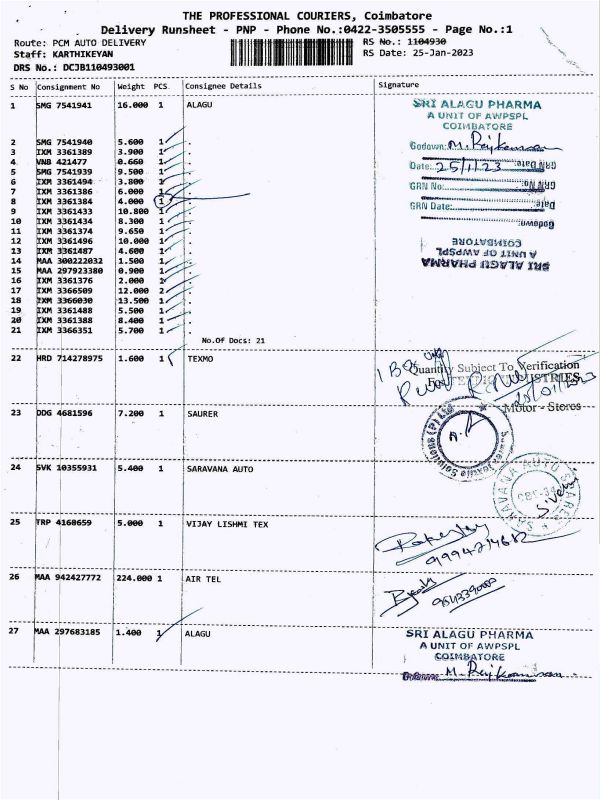 THE PROFESSIONAL COURIERS, Coimbatore
Delivery Runsheet - PNP - Phone No.:0422-3505555 - Page No.:1
Route: PCM AUTO DELIVERY
RS No.: 1104930
Staff: KARTHIKEYAN
RS Date: 25-Jan-2023
DRS No.: DCJB110493001
S No Consignment No Weight PCS Consignee Details Signature
1 SMG 7541941 16.000 1 ALAGU
SRI ALAGU PHARMA
A UNIT OF AWPSPL
COIMBATORE
2 SMG 7541940 5.600 1 .
Godown: M. Rajkannan
3 IXM 3361389 3.900 1 .
4 VNB 421477 0.660 1 .
Date: 25/1/23
5 SMG 7541939 9.500 1 .
6 IXM 3361494 3.800 1 .
GRN No:
7 IXM 3361386 6.000 1 .
8 IXM 3361384 4.000 1 .
GRN Date:
9 IXM 3361433 10.800 1 .
10 IXM 3361434 8.300 1 .
11 IXM 3361374 9.650 1 .
12 IXM 3361496 10.000 1 .
13 IXM 3361487 4.600 1 .
14 MAA 300222032 1.500 1 .
15 MAA 297923380 0.900 1 .
SRI ALAGU PHARMA
A UNIT OF AWPSPL
COIMBATORE
Godown:
Date:
GRN No:
GRN Date:
16 IXM 3361376 2.000 1 .
17 IXM 3366509 12.000 2 .
18 IXM 3366030 13.500 1 .
19 IXM 3361488 5.500 1 .
20 IXM 3361388 8.400 1 .
21 IXM 3366351 5.700 1 .
No.Of Docs: 21
22 HRD 714278975 1.600 1 TEXMO
Quantity Subject To Verification
INDUSTRIES
Motor - Stores
23 DDG 4681596 7.200 1 SAURER
24 SVK 10355931 5.400 1 SARAVANA AUTO
SARAVANA AUTO SPARES
CBE-
25 TRP 4168659 5.000 1 VIJAY LISHMI TEX
26 MAA 942427772 224.000 1 AIR TEL
27 MAA 297683185 1.400 1 ALAGU
SRI ALAGU PHARMA
A UNIT OF AWPSPL
COIMBATORE
M. Rajkannan